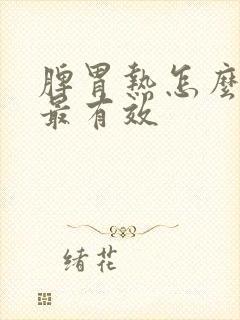 脾胃熱怎麽
最有效
緒花